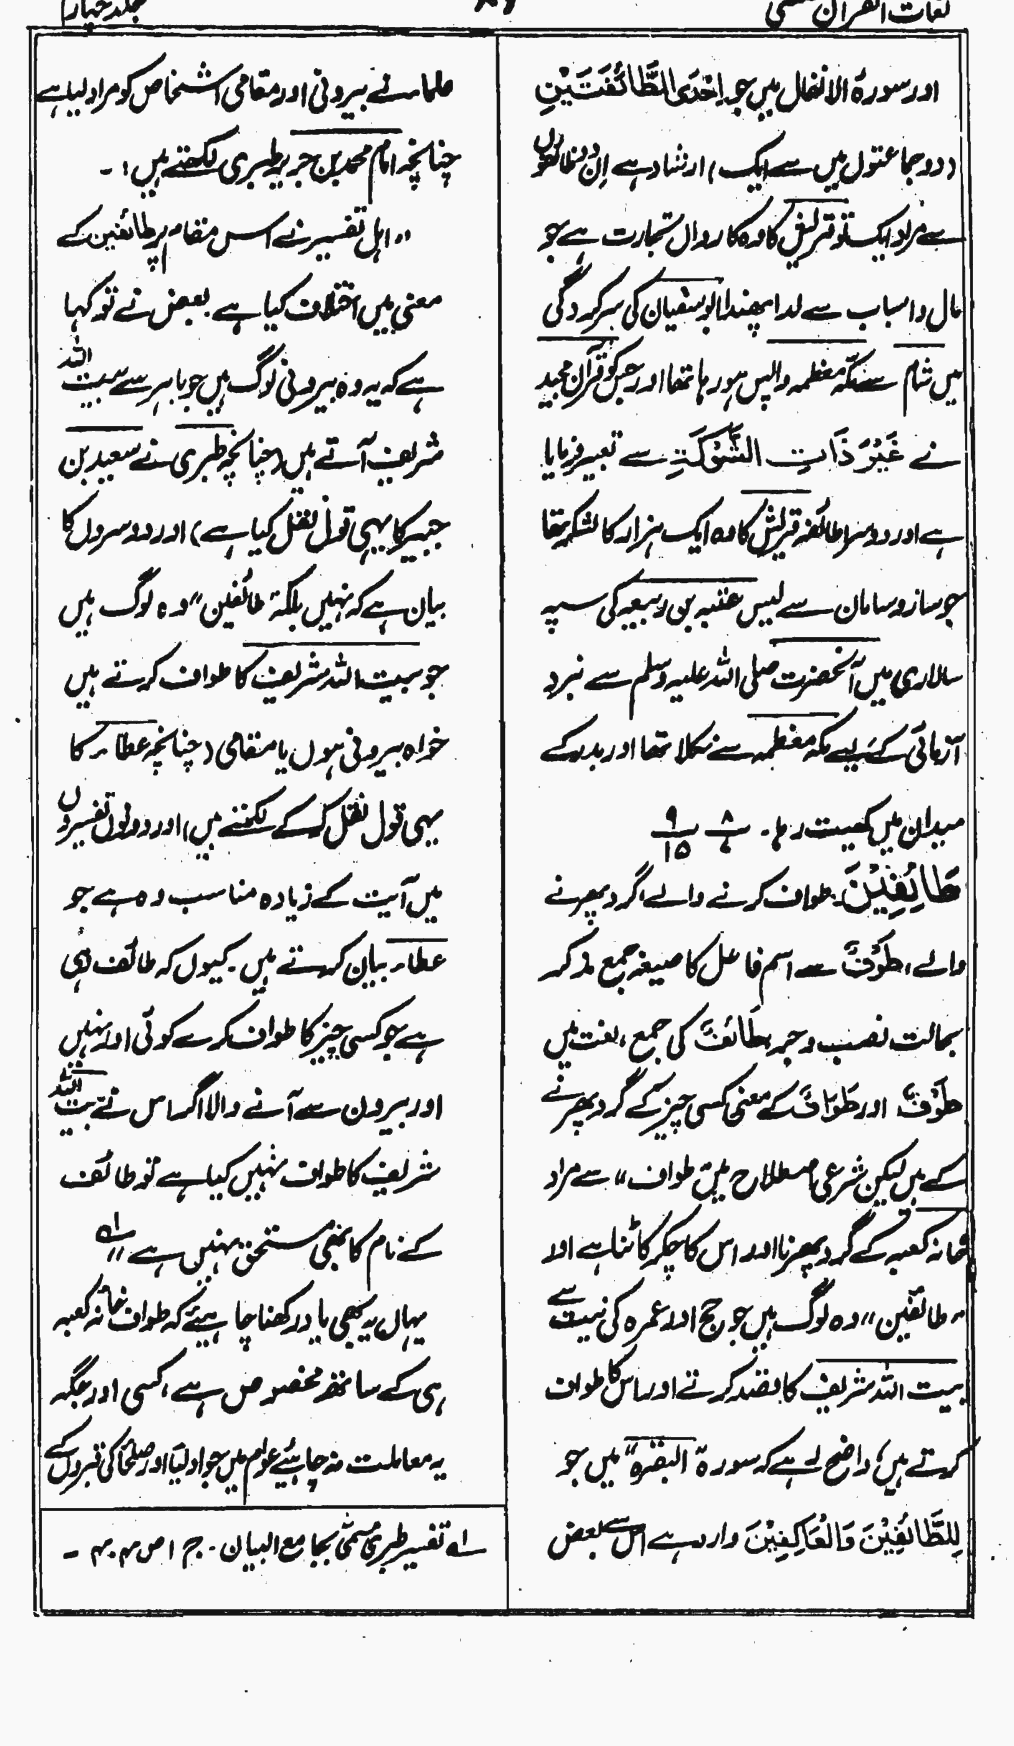 لغات القرآن
جلد چہارم
اور سورۃ الانفال میں جو اِحْدَی الطَّائِفَتَیْنِ
(دو جماعتوں میں سے ایک) ارشاد ہے اِن دو طائفوں
سے مراد ایک تو قریش کا وہ کاروانِ تجارت ہے جو
مال و اسباب سے لدا پھندا ابو سفیان کی سرکردگی
میں شام سے مکّہ معظمہ واپس ہو رہا تھا اور جس کو قرآن مجید
نے غَیْرَ ذَاتِ الشَّوْکَۃِ سے تعبیر فرمایا
ہے اور دوسرا طائفہ قریش کا وہ ایک ہزار کا لشکر تھا
جو ساز و سامان سے لیس عتبہ بن ربیعہ کی سپہ
سالاری میں آنحضرت صلی اللہ علیہ وسلم سے نبرد
آزمائی کے لیے مکہ معظمہ سے نکلا تھا اور بدر کے
میدان میں کھیت رہا۔ ۸ ۹ ۱۵
طَائِفِیْنَ۔ طواف کرنے والے، گرد پھرنے
والے، طَوْفٌ سے اسم فاعل کا صیغہ جمع مذکر
بحالت نصب و جر، طَائِفٌ کی جمع، لغت میں
طَوْفٌ اور طَوَافٌ کے معنی کسی چیز کے گرد پھرنے
کے ہیں لیکن شرعی اصطلاح میں ”طواف“ سے مراد
خانہ کعبہ کے گرد پھرنا اور اس کا چکر کاٹنا ہے اور
”طائفین“ وہ لوگ ہیں جو حج اور عمرہ کی نیت سے
بیت اللہ شریف کا قصد کرتے اور اس کا طواف
کرتے ہیں، واضح رہے کہ سورۃ البقرہ میں جو
لِلطَّائِفِیْنَ وَالْعَاکِفِیْنَ وارد ہے اس سے بعض
علماء نے بیرونی اور مقامی اشخاص کو مراد لیا ہے
چنانچہ امام محمد بن جریر طبری لکھتے ہیں:۔
”اہل تفسیر نے اس مقام پر طائفین کے
معنی میں اختلاف کیا ہے بعض نے تو کہا
ہے کہ یہ وہ بیرونی لوگ ہیں جو باہر سے بیت اللہ
شریف آتے ہیں (چنانچہ طبری نے سعید بن
جبیر کا یہی قول نقل کیا ہے) اور دوسروں کا
بیان ہے کہ نہیں بلکہ ”طائفین“ وہ لوگ ہیں
جو بیت اللہ شریف کا طواف کرتے ہیں
خواہ بیرونی ہوں یا مقامی (چنانچہ عطاء کا
یہی قول نقل کر کے لکھتے ہیں) اور دونوں تفسیروں
میں آیت کے زیادہ مناسب وہ ہے جو
عطاء بیان کرتے ہیں۔ کیوں کہ طائف وہی
ہے جو کسی چیز کا طواف کرے کوئی اور نہیں
اور بیرون سے آنے والا اگر اس نے بیت اللہ
شریف کا طواف نہیں کیا ہے تو طائف
کے نام کا بھی مستحق نہیں ہے“ لہ
یہاں یہ بھی یاد رکھنا چاہئے کہ طواف خانہ کعبہ
ہی کے ساتھ مخصوص ہے، کسی اور جگہ
یہ معاملت نہ چاہئے عوام میں جو اولیا اور صلحا کی قبروں کے
لہ تفسیر طبری مسمّٰی بجامع البیان۔ ج ۱ ص ۴۰۴ ۔